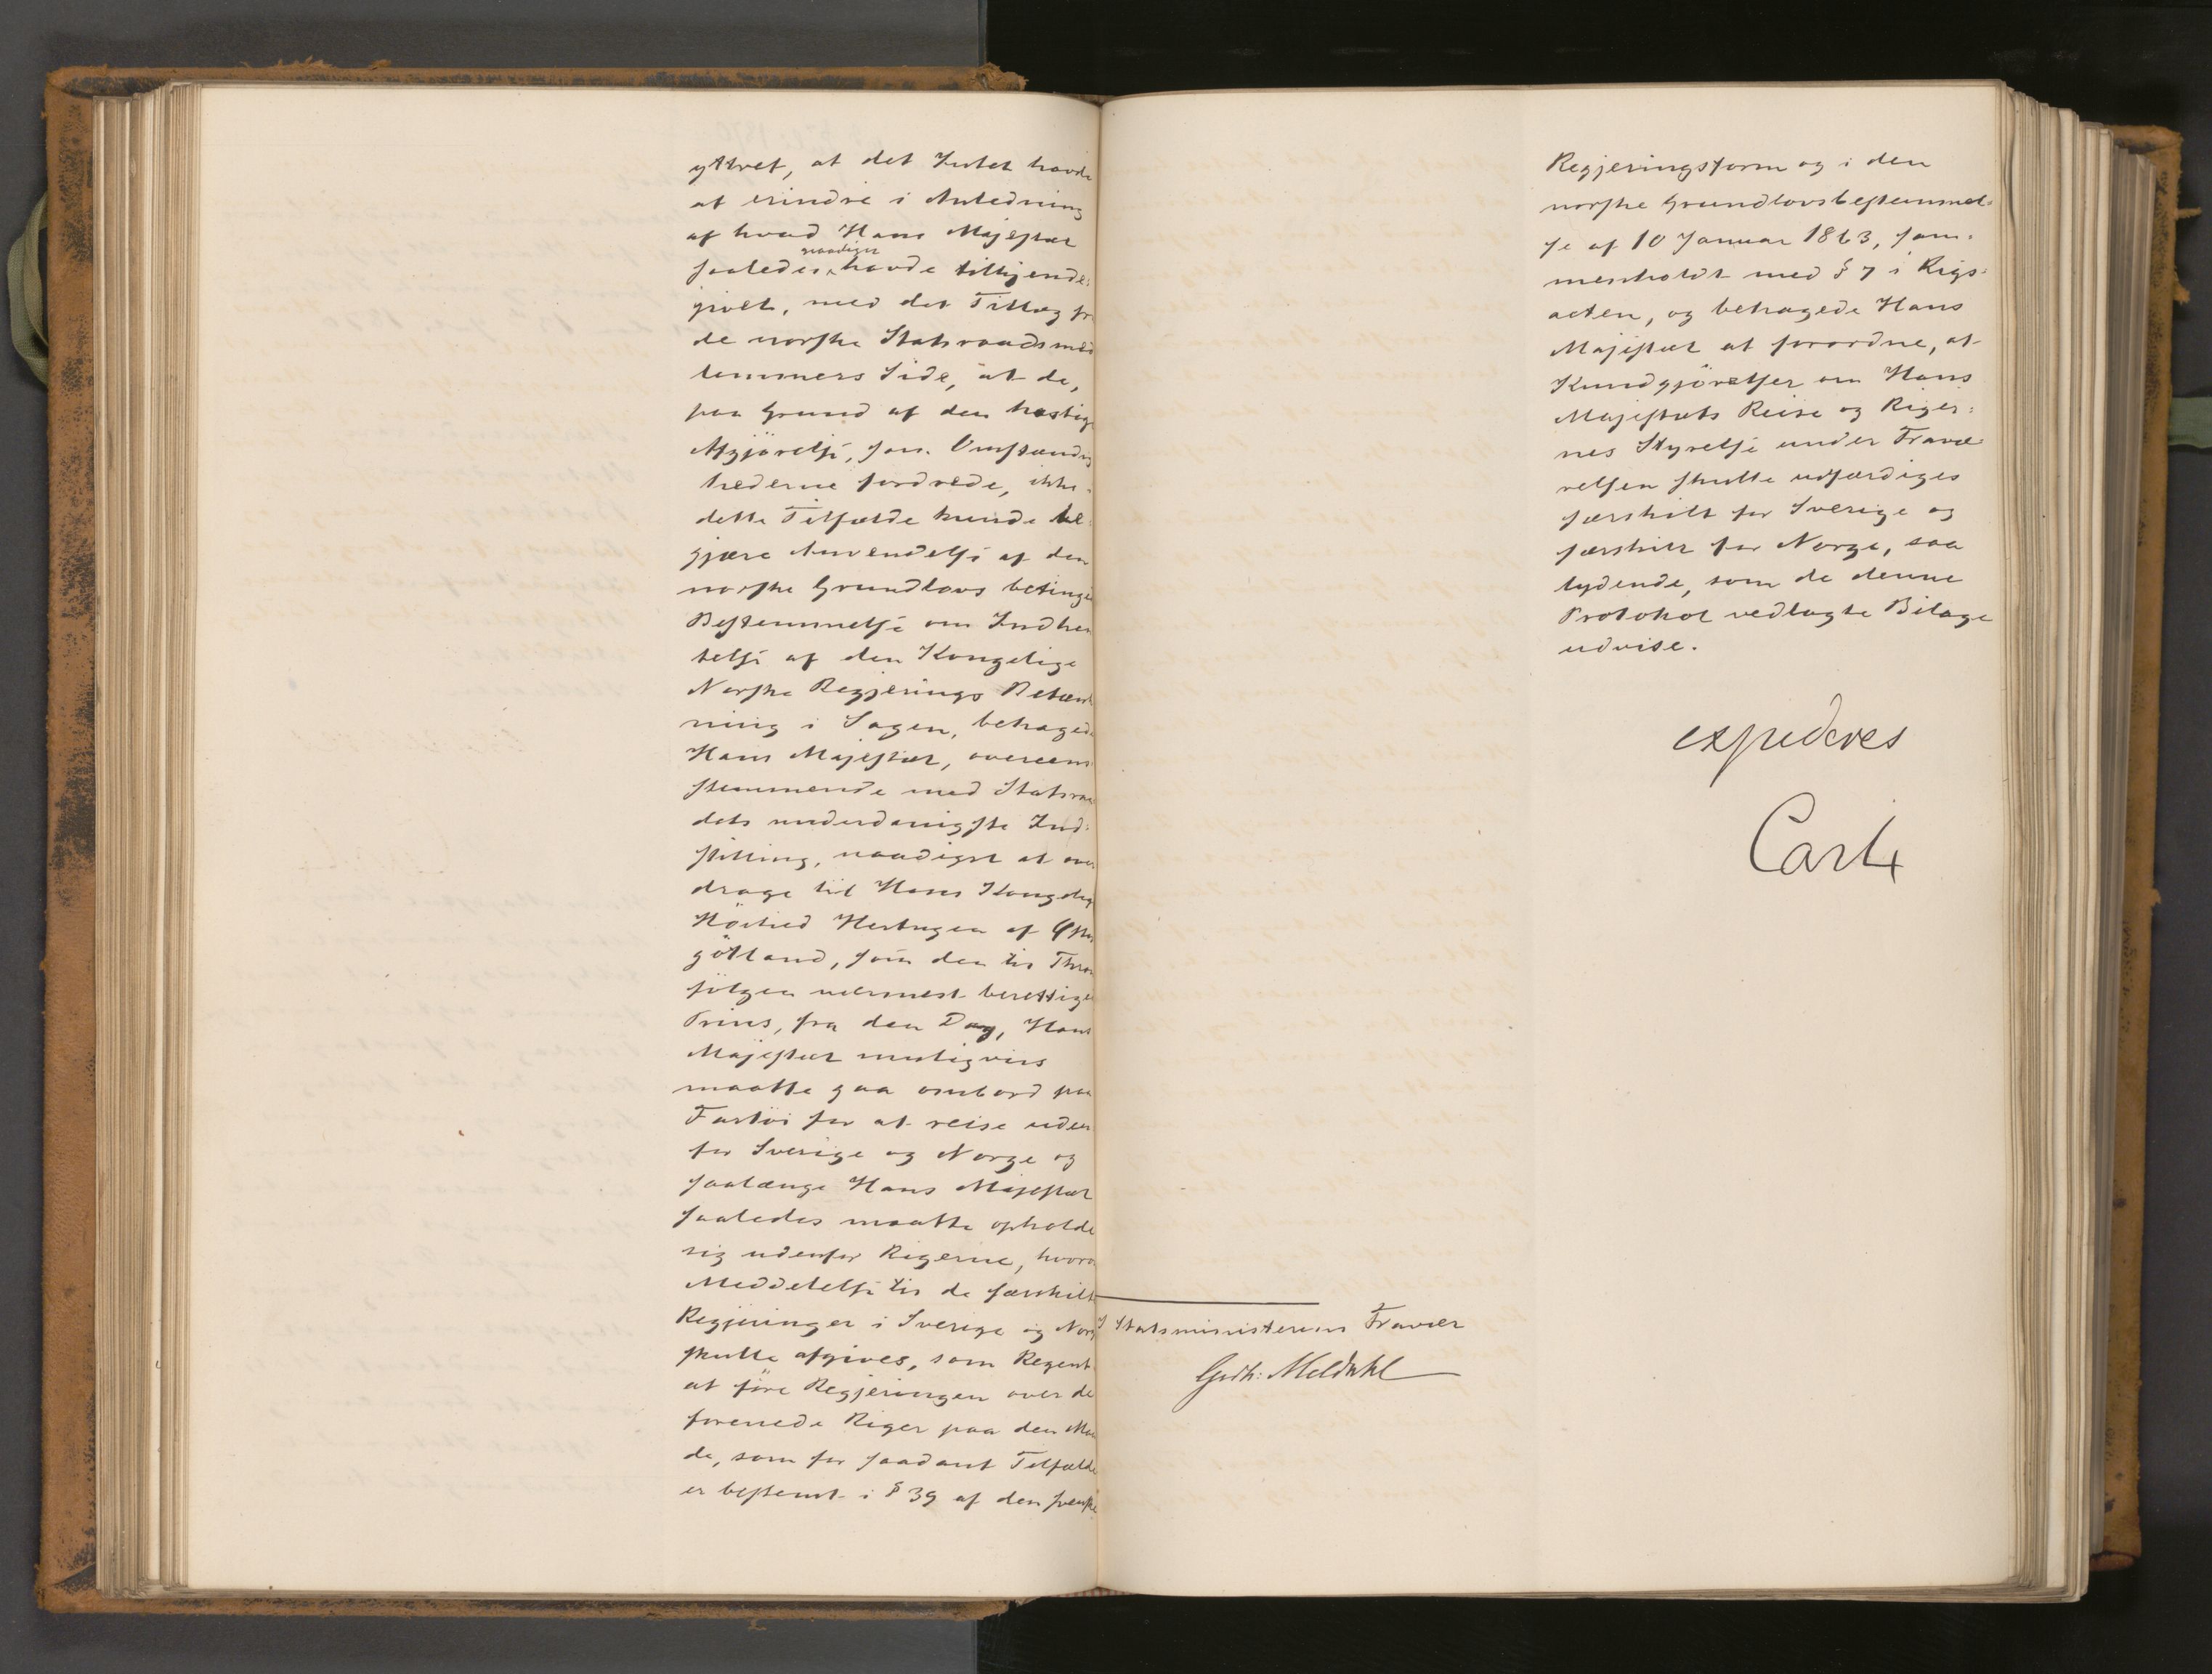 yttret, at det Intet havde
at erindre i Anledning
af hvad Hans Majestæt
naadigst
saaledes havde tilkjende-
givet, med det Tillæg fra
de norske Statsraadsmed
lemmers Side, at de,
paa Grund af den hastige
Afgjörelse, som Omstændig
hederne fordrede, ikke i
dette Tilfælde kunde til
gjøre Anvendelse af den
norske Grundlovs betingede
Bestemmelse om Indhen
telse af den Kongelige
Norske Regjerings Betænk
ning i Sagen, behagede
Hans Majestæt, overeens
stemmende med Statsraa
dets underdanigste Ind-
stilling, naadigst at over
drage til Hans Kongelige
Höihed Hertugen af Öster
götland, som den til Thron
fölgen nærmest berettigede
Prins, fra den Dag, Hans
Majestæt muligviis
maatte gaa ombord paa
Fartöi for at reise uden
for Sverige og Norge og
saalænge Hans Majestæt
saaledes maatte opholde
sig udenfor Rigerne, hvorom
Meddelelse til de særskilte
Regjeringer i Sverige og Norge
skulle afgives, som Regent
at före Regjeringen over de
forenede Riger paa den Maa
de, som for saadant Tilfælde
er bestemt i § 39 af den svenske
I Statsministerens Fravær
Meldahl
Regjeringsform og i den
norske Grundlovsbestemmel-
se af 10 Januar 1863, sam-
menholdt med § 7 i Rigs-
acten, og behagede Hans
Majestæt at forordne, at
Kundgjörelser om Hans
Majestæts Reise og Riger-
nes Styrelse under Fravæ
relsen skulle udfærdiges
særskilt for Sverige og
særskilt for Norge, saa
lydende, som de denne
Protokol vedlagte Bilage
udvise.
expederes
Carl